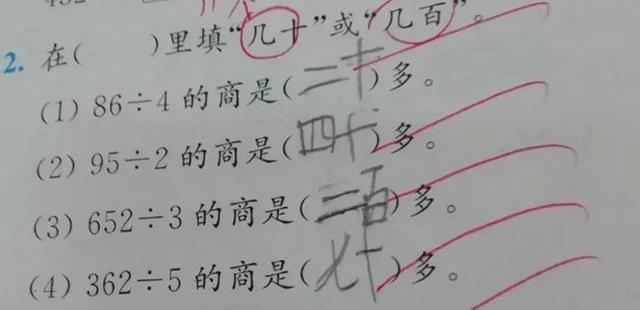 2. 在( )里填“几十”或“几百”。
(1) 86÷4 的商是(二十)多。
(2) 95÷2 的商是(四十)多。
(3) 652÷3 的商是(二百)多。
(4) 362÷5 的商是(七十)多。